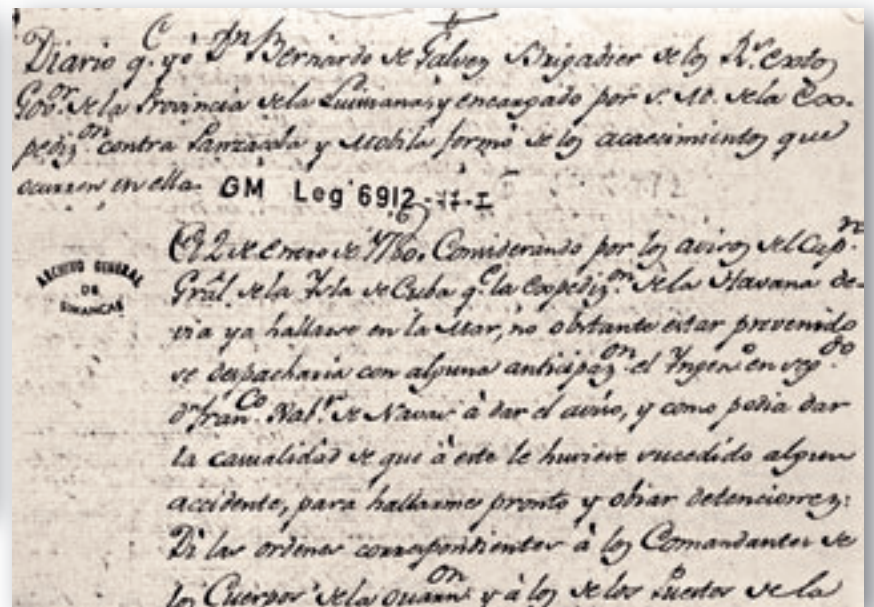 Diario q.e yo Dn Bernardo de Galvez Brigadier de los R.s exctos
Gov.or de la Provincia de la Luisiana, y encargado por S. M. de la Exº
pediz.on contra Panzacola y Mobila formo de los acaecimientos que
ocurren en ella.
GM Leg 6912
ARCHIVO GENERAL
DE
SIMANCAS
El 2 de Enero de 1780. Considerando por los avisos del Cap.n
Grâl. de la Ysla de Cuba q.e la Expediz.on de la Havana de-
via ya hallarse en la Mar, no obstante estar prevenido
se despacharia con alguna anticipaz.on el Yngen.o en seg.do
dn Fran.co de Navas à dar el aviso, y como podia dar
la casualidad de que à este le huviese sucedido algun
accidente, para hallarme pronto y obiar detenciones:
Di las ordenes correspondientes à los Comandantes de
los Cuerpos de la Guarn.on y à los de los Puestos de la